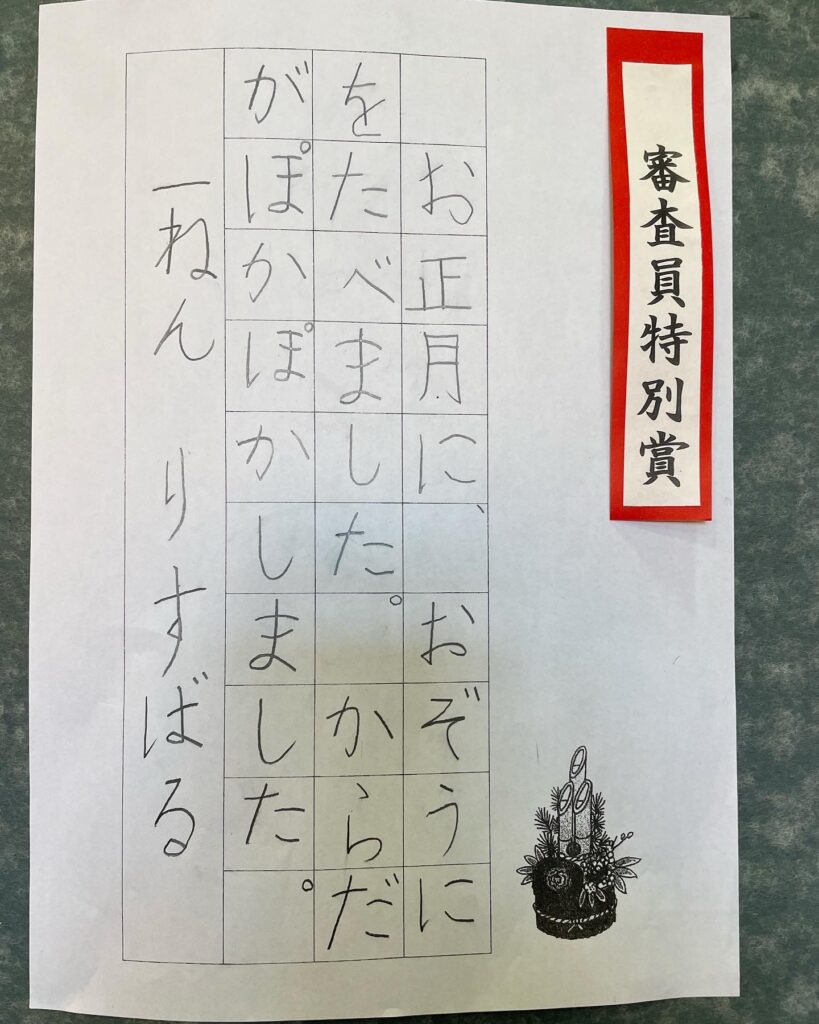 審査員特別賞
お正月に、おぞうに
をたべました。からだ
がぽかぽかしました。
一ねん りすばる